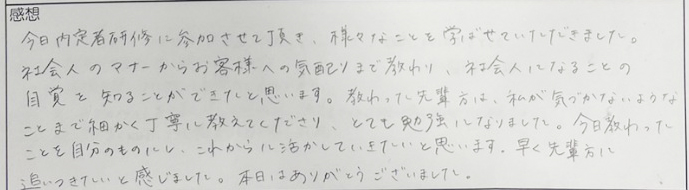 感想
今日内定者研修に参加させて頂き、様々なことを学ばせていただきました。
社会人のマナーからお客様への気配りまで教わり、社会人になることの
自覚を知ることができたと思います。教わった先輩方は、私が気づかないような
ことまで細かく丁寧に教えてくださり、とても勉強になりました。今日教わった
ことを自分のものにし、これからに活かしていきたいと思います。早く先輩方に
追いつきたいと感じました。本日はありがとうございました。